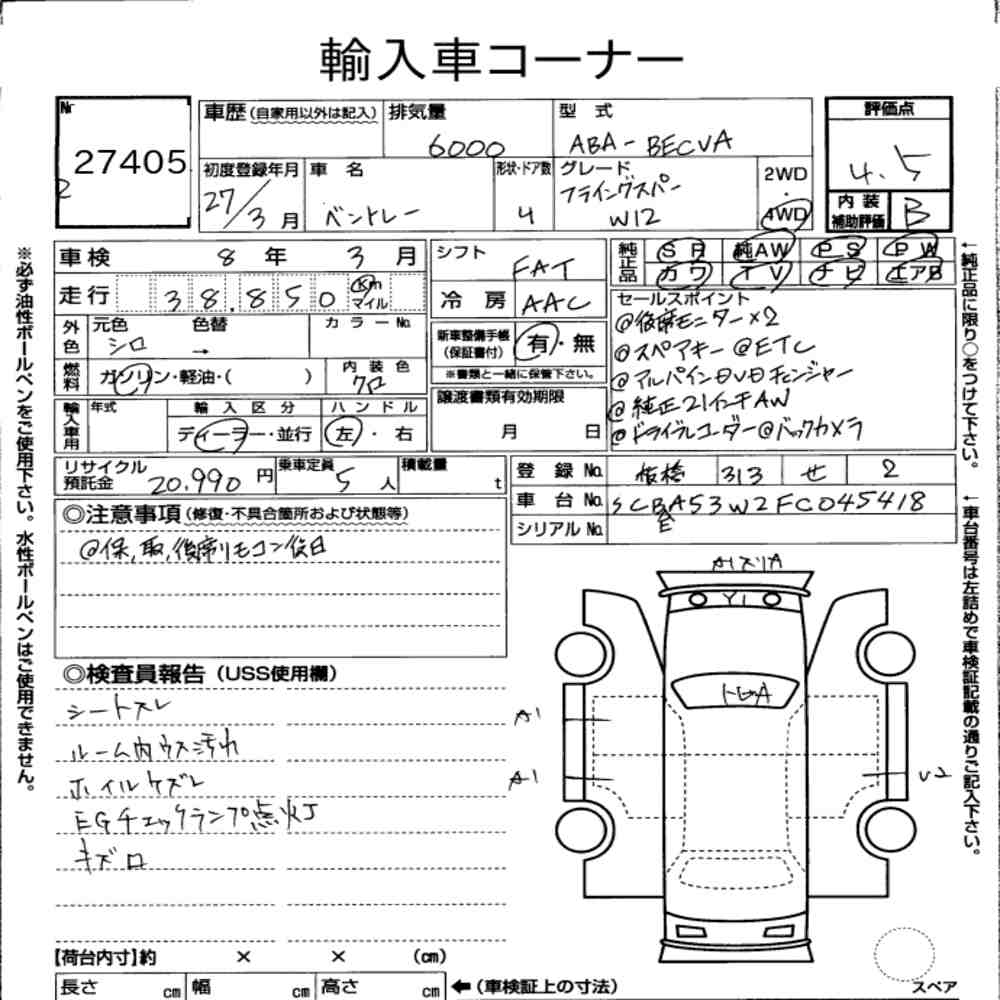 輸入車コーナー
Nr
27405
2
車歴(自家用以外は記入)
排気量
6000
型 式
ABA-BECVA
評価点
4.5
初度登録年月
27/3月
車 名
ベントレー
形状・ドア数
4
グレード
フライングスパー
W12
2WD
・
4WD
内装
補助評価
B
車検 8 年 3 月
シフト
FAT
純正品
SR 純AW PS PW
カワ TV ナビ エアB
走行 38.850 Km
マイル
冷 房
AAC
セールスポイント
@後席モニター×2
@スペアキー @ETC
@アルパインDVDチェンジャー
@純正21インチAW
@ドライブレコーダー@バックカメラ
外色
元色
シロ
色替
→
カラーNo.
新車整備手帳
(保証書付)
有・無
※書類と一緒に保管下さい。
燃料
ガソリン・軽油・( )
内 装 色
クロ
譲渡書類有効期限
月 日
輸入車用
年式
輸 入 区 分
ディーラー・並行
ハ ン ド ル
左・右
リサイクル
預託金 20.990 円
乗車定員
5 人
積載量
t
登 録 No. 板橋 313 せ 2
車 台 No. SCBAS3W2FC045418
シリアル No.
◎注意事項(修復・不具合箇所および状態等)
@保,取,後席リモコン後日
◎検査員報告(USS使用欄)
シートスレ
ルーム内ウス汚れ
ホイルケズレ
EGチェックランプ点灯
キズロ
Y1
A1
A1
U2
【荷台内寸】約 × × (cm)
長さ cm 幅 cm 高さ cm
←(車検証上の寸法)
スペア
※必ず油性ボールペンをご使用下さい。水性ボールペンはご使用できません。
←純正品に限り○をつけて下さい。
←車台番号は左詰めで車検証記載の通りご記入下さい。